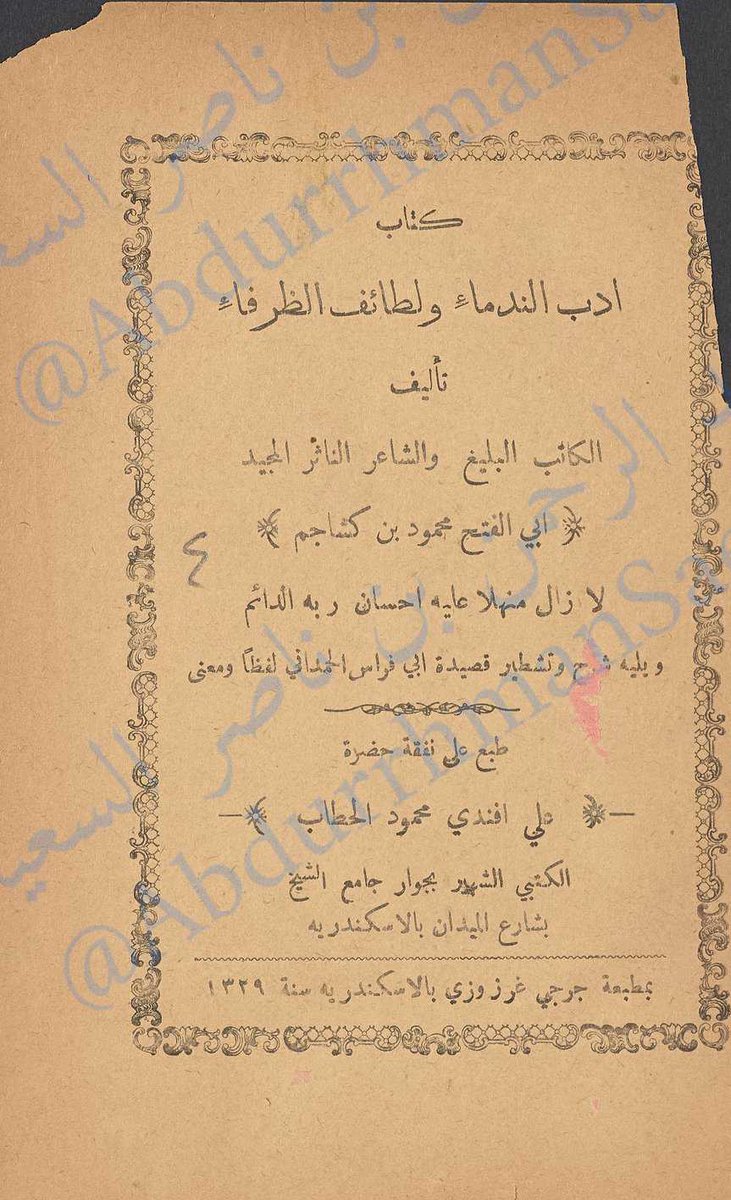 كتاب
ادب الندماءِ ولطائف الظرفاءِ
تأليف
الكاتب البليغ والشاعر الناثر المجيد
ابي الفتح محمود بن كشاجم
٤
لا زال منهلا عليه احسان ربه الدائم
ويليه شرح وتشطير قصيدة ابي فراس الحمداني لفظاً ومعنى
طبع على نفقة حضرة
علي افندي محمود الحطاب
الكتبي الشهير بجوار جامع الشيخ
بشارع الميدان بالاسكندريه
بمطبعة جرجي غرزوزي بالاسكندريه سنة ١٣٢٩
بن ناصر السعي
@AbdurrhmanSa
الرحمن بن ناصر السعي
@AbdurrhmanSaa